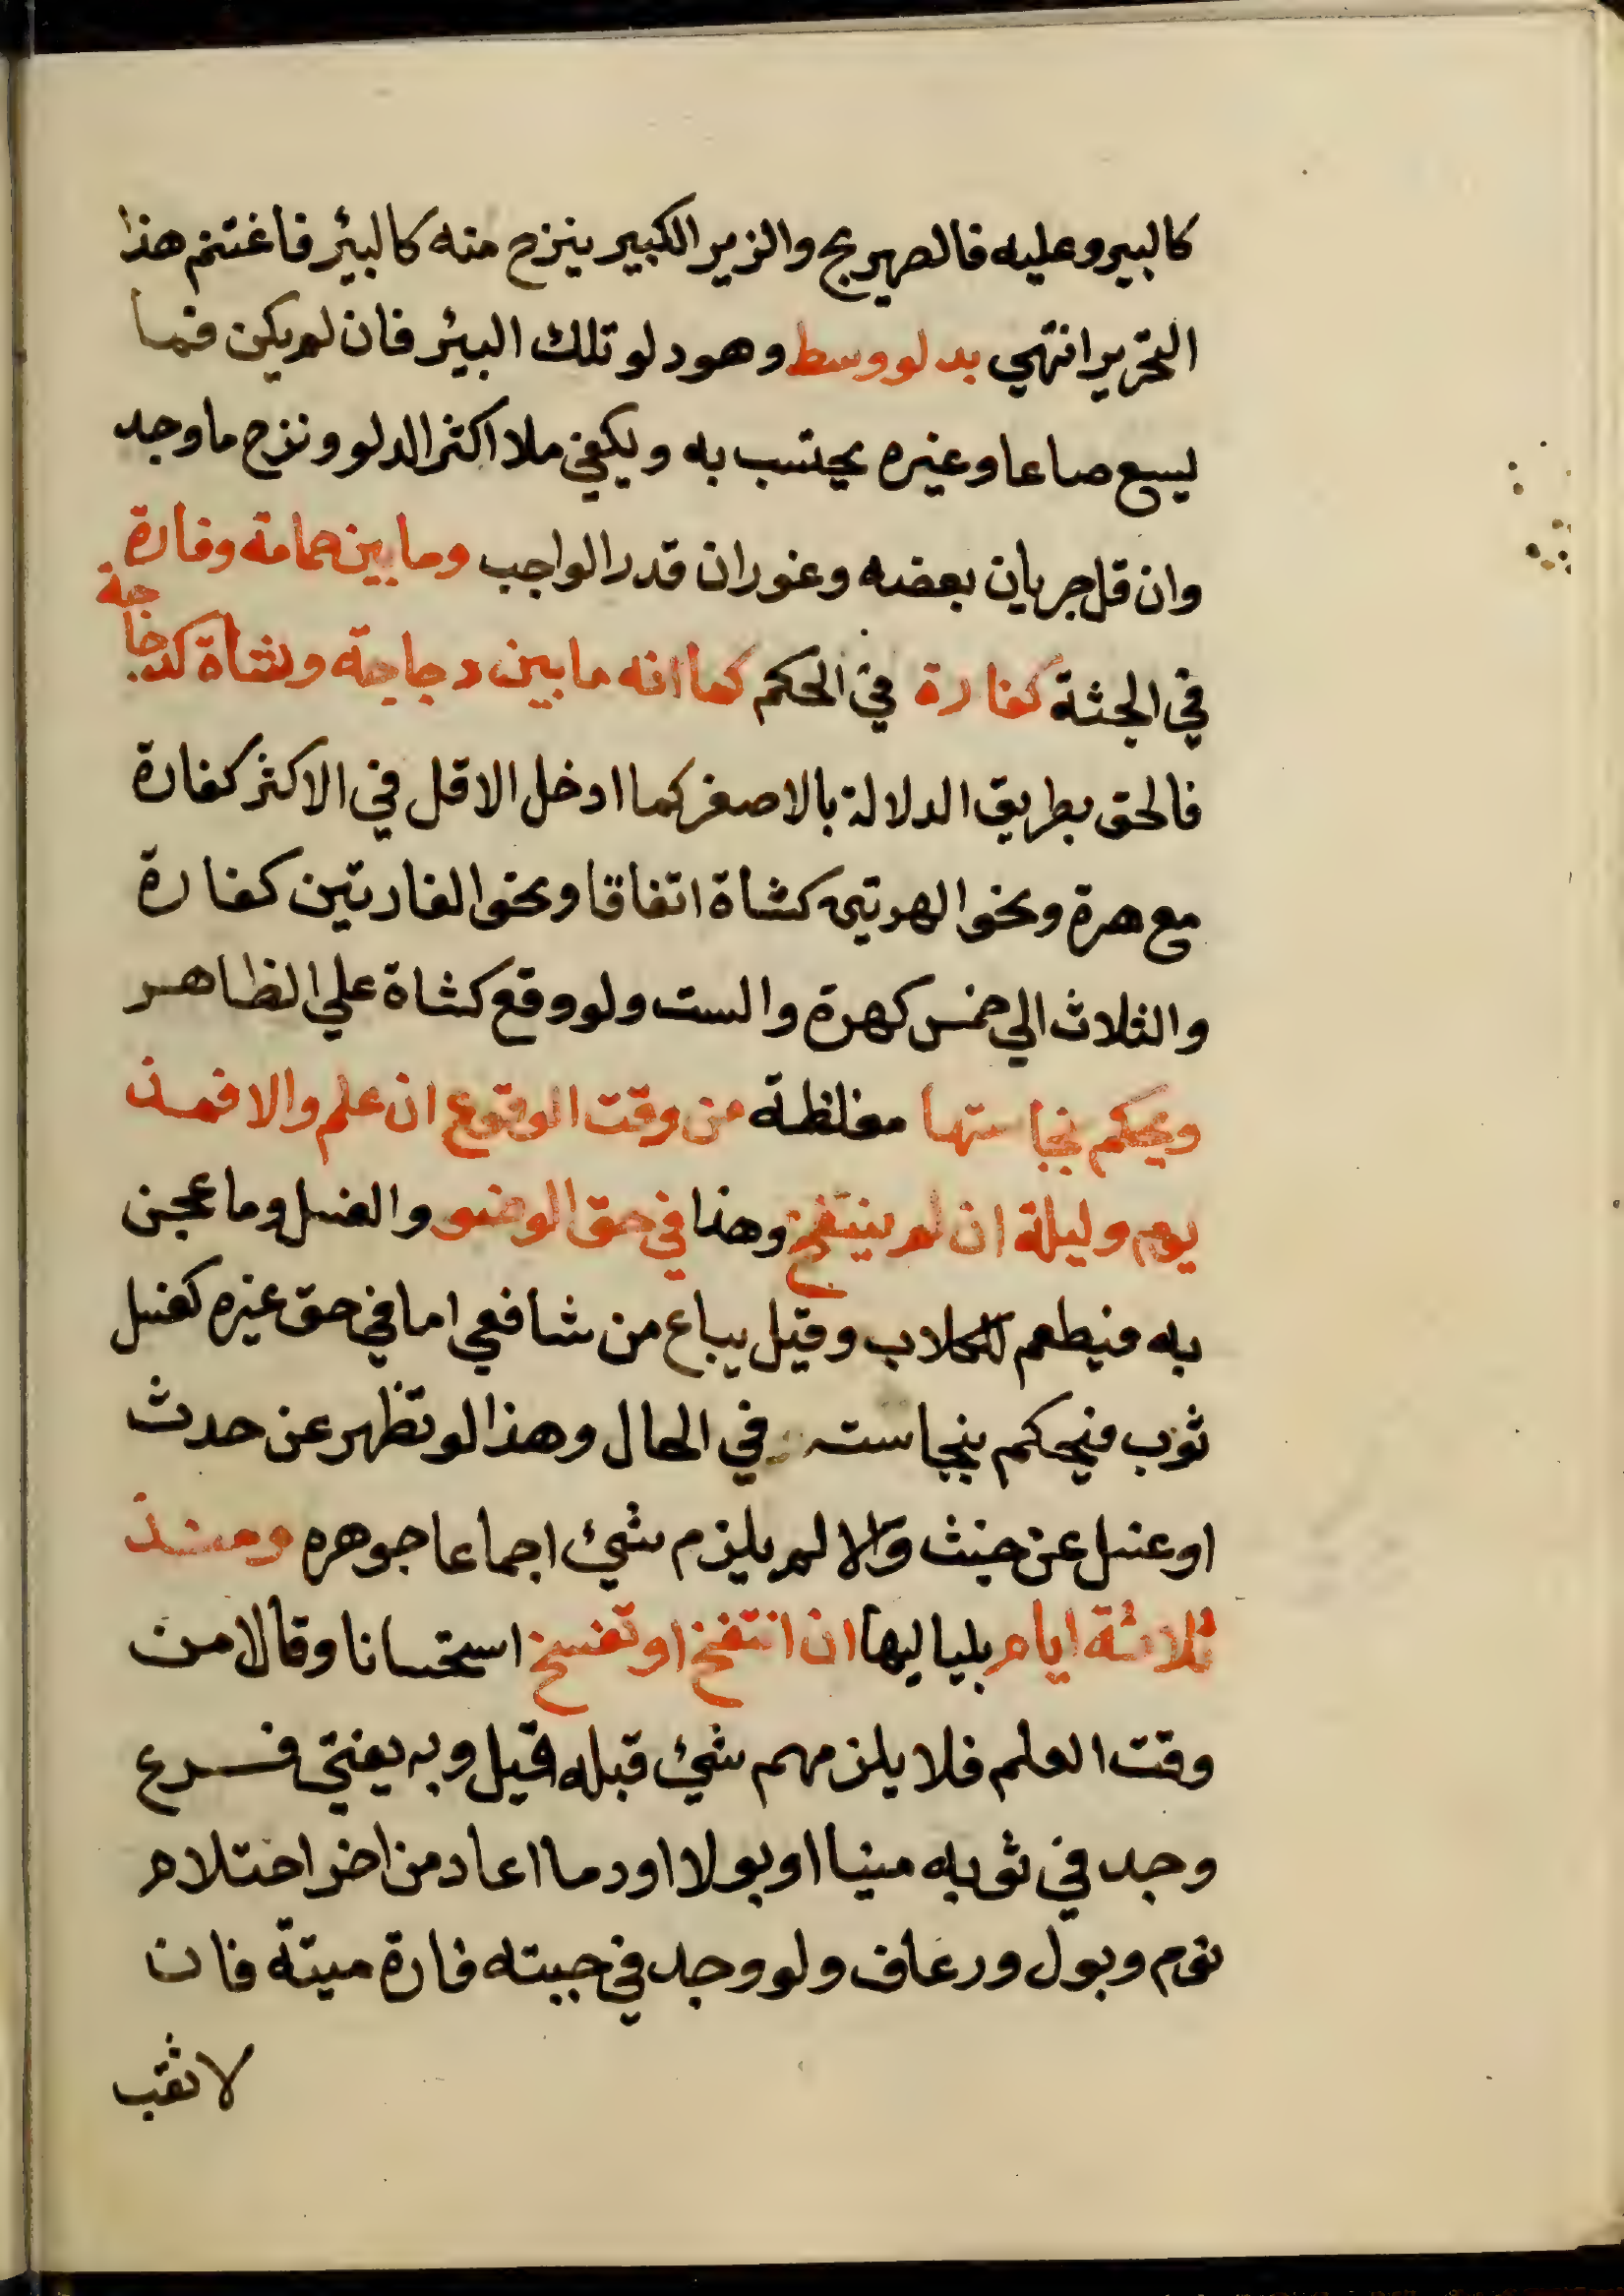 كالبير وعليه فالصهريج والزير الكبير ينزح منه كالبيئر فاغتنم هذا
التحرير انتهي بدلو وسط وهو دلو تلك البيئر فان لم يكن فما
يسع صاعا وغيره يحتسب به ويكفي ملا اكثر الدلو ونزح ما وجد
وان قل جريان بعضه وغوران قدر الواجب وما بين حمامة وفارة
في الجثة كفارة في الحكم كما انه ما بين دجاجة وشاة كدجاجة
فالحق بطريق الدلالة بالاصغر كما ادخل الاقل في الاكثر كفارة
مع هرة ونحو الهرتين كشاة اتفاقا ونحو الفارتين كفارة
والثلاث الي خمس كهرة والست ولو وقع كشاة علي الظاهر
ويحكم بنجاستها مغلظة من وقت الوقوع ان علم والا فمذ
يوم وليلة ان لم ينتفخ وهذا في حق الوضو والغسل وما عجن
به فيطعم للكلاب وقيل يباع من شافعي اما في حق غيره كغسل
ثوب فيحكم بنجاسته في الحال وهذا لو تطهر عن حدث
او غسل عن خبث والا لم يلزم شيئ اجماعا جوهره ومنذ
ثلاثة ايام بلياليها ان انتفخ او تفسخ استحسانا وقالا من
وقت العلم فلا يلزمهم شيئ قبله قيل وبه يفتي فرع
وجد في ثوبه منيا او بولا او دما اعاد من اخر احتلام
نوم وبول ورعاف ولو وجد في جبته فارة ميتة فان
لا ثقب